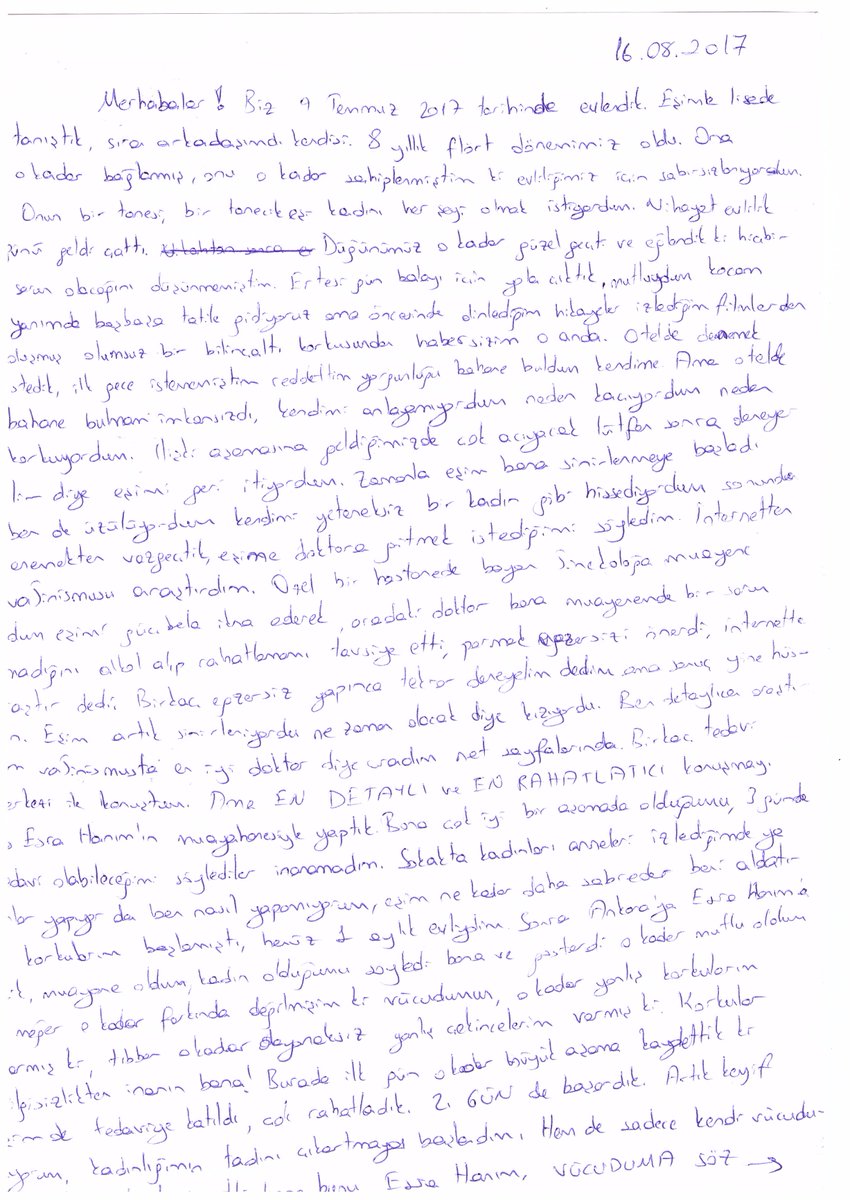 16.08.2017
Merhabalar! Biz 9 Temmuz 2017 tarihinde evlendik. Eşimle lisede
tanıştık, sıra arkadaşımdı kendisi. 8 yıllık flört dönemimiz oldu. Ona
o kadar bağlanmış, onu o kadar sahiplenmiştim ki evliliğimiz için sabırsızlanıyordum.
Onun bir tanesi, bir tanecik eşi kadını her şeyi olmak istiyordum. Nihayet evlilik
günü geldi çattı. Düğünümüz o kadar güzel geçti ve eğlendik ki hiçbir
sorun olacağını düşünmemiştim. Ertesi gün balayı için yola çıktık, mutluydum kocam
yanımda başbaşa tatile gidiyoruz ama öncesinde dinlediğim hikayeler izlediğim filmlerden
oluşmuş olumsuz bir bilinçaltı korkusundan habersizim o anda. Otelde denemek
istedik, ilk gece istememiştim reddettim yorgunluğu bahane buldum kendime. Ama otelde
bahane bulmam imkansızdı, kendimi anlayamıyordum neden kaçıyordum neden
korkuyordum. İlişki aşamasına geldiğimizde çok acıyacak lütfen sonra deneye-
lim diye eşimi geri itiyordum. Zamanla eşim bana sinirlenmeye başladı
ben de üzülüyordum kendimi yeteneksiz bir kadın gibi hissediyordum sonunda
enemekten vazgeçtik, eşime doktora gitmek istediğimi söyledim. İnternetten
vajinismusu araştırdım. Özel bir hastanede bayan jinekoloğa muayene
dum eşimi güç bela ikna ederek, oradaki doktor bana muayenemde bir sorun
madığını alkol alıp rahatlamamı tavsiye etti, parmak egzersizi önerdi, internette
aştır dedi. Birkaç egzersiz yapınca tekrar deneyelim dedim ama sonuç yine hüs-
n. Eşim artık sinirleniyordu ne zaman olacak diye kızıyordu. Ben detaylıca araştı-
m vajinismusta en iyi doktor diye aradım net sayfalarında. Birkaç tedavi
erkezi ile konuştum. Ama EN DETAYLI ve EN RAHATLATICI konuşmayı
Esra Hanım'ın muayahanesiyle yaptık. Bana çok iyi bir aşamada olduğumu, 3 günde
davi olabileceğimi söylediler inanamadım. Sokakta kadınları anneleri izlediğimde ya
lar yapıyor da ben nasıl yapamıyorum, eşim ne kadar daha sabreder beni aldatır
korkularım başlamıştı, henüz 1 aylık evliydim. Sonra Ankara'ya Esra Hanım'a
k, muayene oldum, kadın olduğumu söyledi bana ve gösterdi o kadar mutlu oldum
meğer o kadar farkında değilmişim ki vücudumun, o kadar yanlış korkularım
armış ki, tıbben o kadar dayanaksız yanlış çekincelerim varmış ki. Korkular
gisizlikten inanın bana! Burada ilk gün o kadar büyük aşama kaydettik ki
im de tedaviye katıldı, çok rahatladık. 2. GÜN de başardık. Artık keyif
yorum, kadınlığımın tadını çıkartmaya başladım. Hem de sadece kendi vücudu-
bunu Esra Hanım, VÜCUDUMA SÖZ →